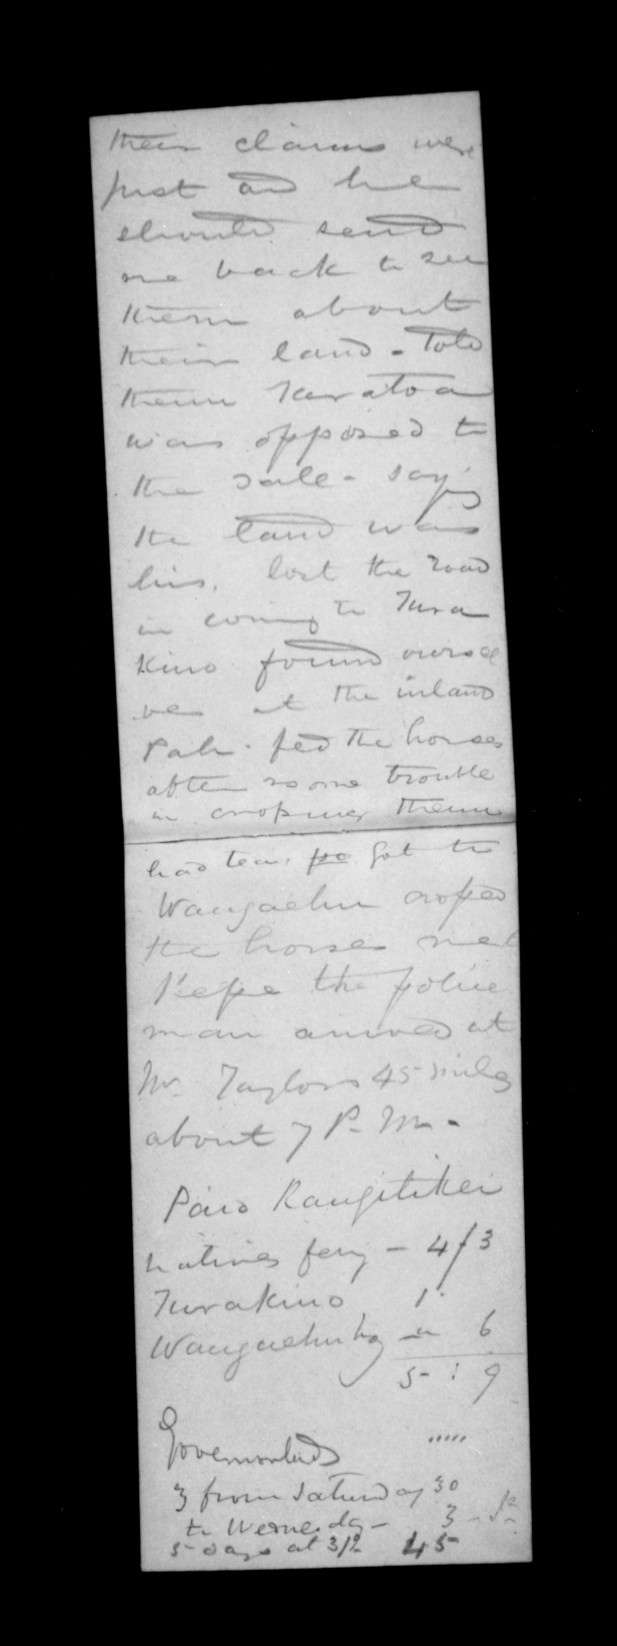 their claims were
just and he
should send
me back to see
them about
their land - Told
them Keratoa
was opposed to
the sale - say'g
the land was
his. lost the road
in coming to Tura
kino found oursel
ves at the inland
Pah. fed the horses
after some trouble
in crossing them
had tea. Got to
Wangaehu crossed
the horses met
Kepe the police
man arrived at
Mr. Taylors 45 miles
about 7 P.M.-
Paid Rangitikei
natives ferry - 4/3
Turakino 1
Wangaehu 6
5 : 9
3 from Saturday 30
to Wednesday - 3
5 days at 3/- 45